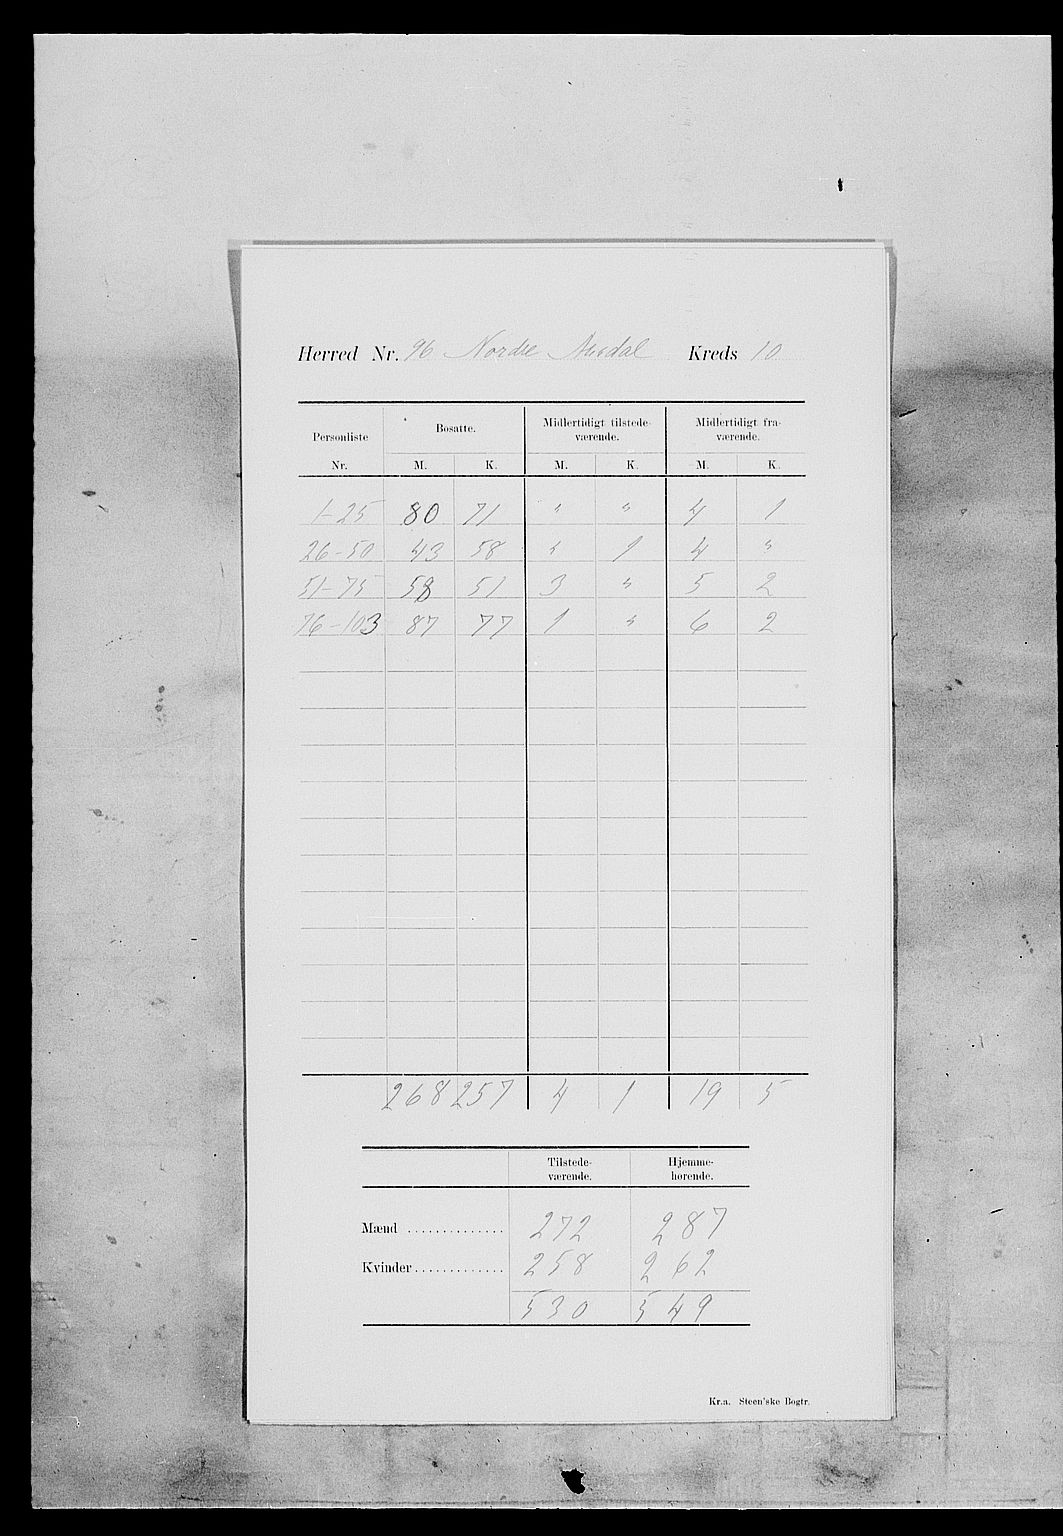 Herred Nr. 96 Nordre Aurdal Kreds 10
Personliste Nr. Bosatte. Midlertidigt tilstede-værende. Midlertidigt fra-værende.
M. K. M. K. M. K.
1-25 80 71 " " 4 1
26-50 43 58 " 1 4 "
51-75 58 51 3 " 5 2
76-103 87 77 1 " 6 2
268 257 4 1 19 5
Tilstede-værende. Hjemme-hørende.
Mænd .............. 272 287
Kvinder ............. 258 262
530 549
Kr.a. Steen'ske Bogtr.